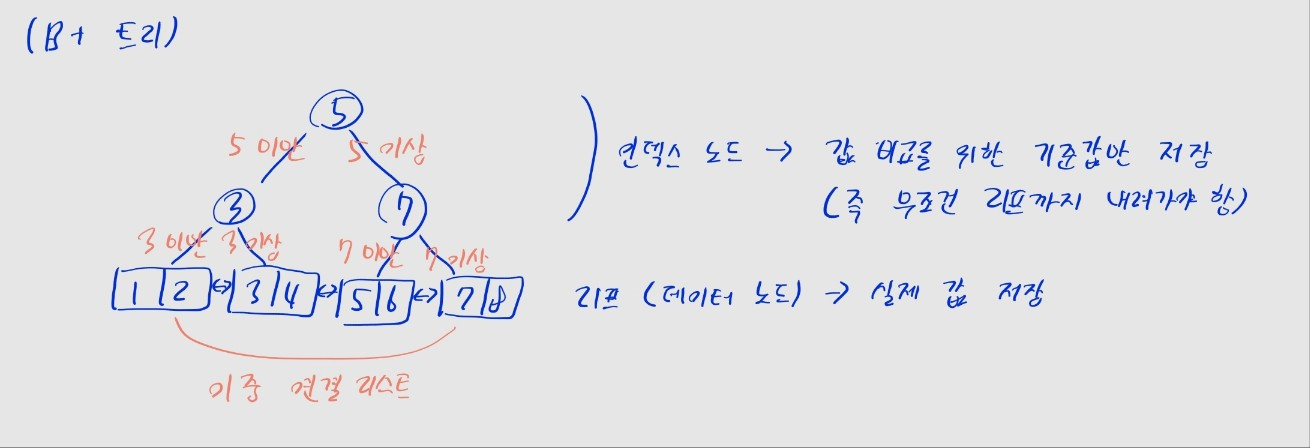 (B+ 트리)
5
5 미만 5 이상
인덱스 노드 → 값 비교를 위한 기준값만 저장
(즉 무조건 리프까지 내려가야 함)
3 7
3 미만 3 이상 7 미만 7 이상
1 2 ↔ 3 4 ↔ 5 6 ↔ 7 8
리프 (데이터 노드) → 실제 값 저장
이중 연결 리스트